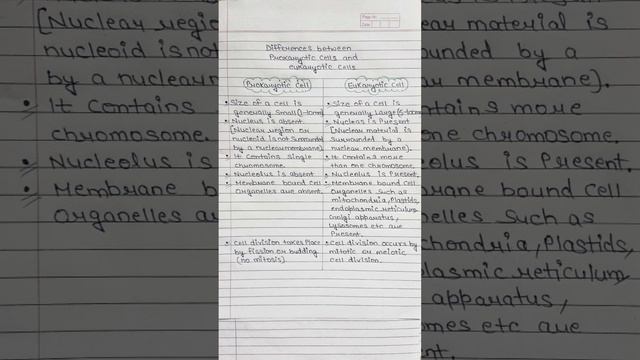 Page No.
Date
Differences between
Prokaryotic cells and
eukaryotic cells
Prokaryotic Cell
• Size of a cell is
generally small (1-10mm)
• Nucleus is absent
[Nuclear region or
nucleoid is not surrounded
by a nuclear membrane].
• It contains single
chromosome.
• Nucleolus is absent
• Membrane bound cell
organelles are absent.
• Cell division takes place
by fission or budding
(no mitosis)
Eukaryotic Cell
• Size of a cell is
generally large (5-100mm)
• Nucleus is Present
[Nuclear material is
surrounded by a
nuclear membrane].
• It contains more
than one chromosome.
• Nucleolus is Present.
• Membrane bound cell
organelles such as
mitochondria, Plastids,
endoplasmic reticulum
Golgi apparatus,
Lysosomes etc are
Present.
• Cell division occurs by
mitotic or meiotic
cell division.
[Nuclear region
nucleoid is not
by a nuclear
• It contains
chromosome.
• Nucleolus is
• Membrane b
organelles are
ear material is
ounded by a
ar membrane].
tains more
one chromosome.
olus is Present.
rane bound cell
elles such as
chondria, Plastids,
plasmic reticulum
apparatus,
omes etc are
nt.